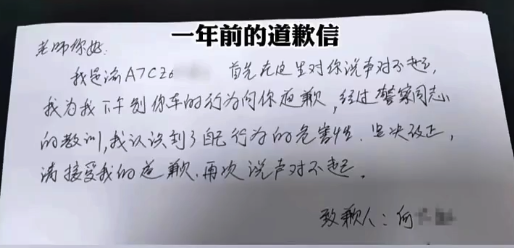 一年前的道歉信
老师你好:
我是渝A7CZ6 首先在这里对你说声对不起,
我为我下午别你车的行为向你道歉,经过警察同志
的教训,我认识到了自己行为的危害性.坚决改正,
请接受我的道歉.再次说声对不起.
致歉人:何